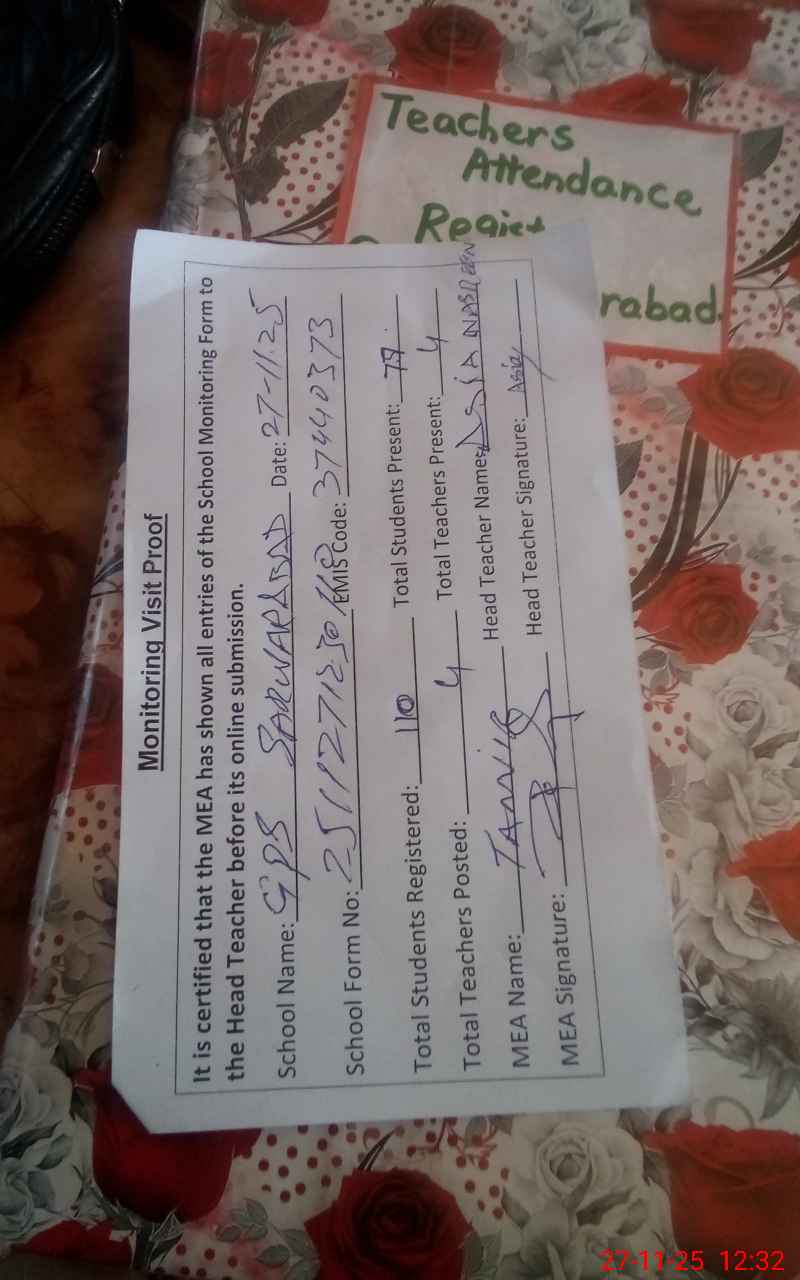 Teachers
Attendance
Regist
rabad.
Monitoring Visit Proof
It is certified that the MEA has shown all entries of the School Monitoring Form to
the Head Teacher before its online submission.
School Name: GPS SARWARABAD Date: 27-11.25
School Form No: EMIS Code: 37440373
Total Students Registered: 110 Total Students Present: 79
Total Teachers Posted: 4 Total Teachers Present: 4
MEA Name: Head Teacher Name: ASIA NASREEN
MEA Signature: Head Teacher Signature: Asia
27-11-25 12:32